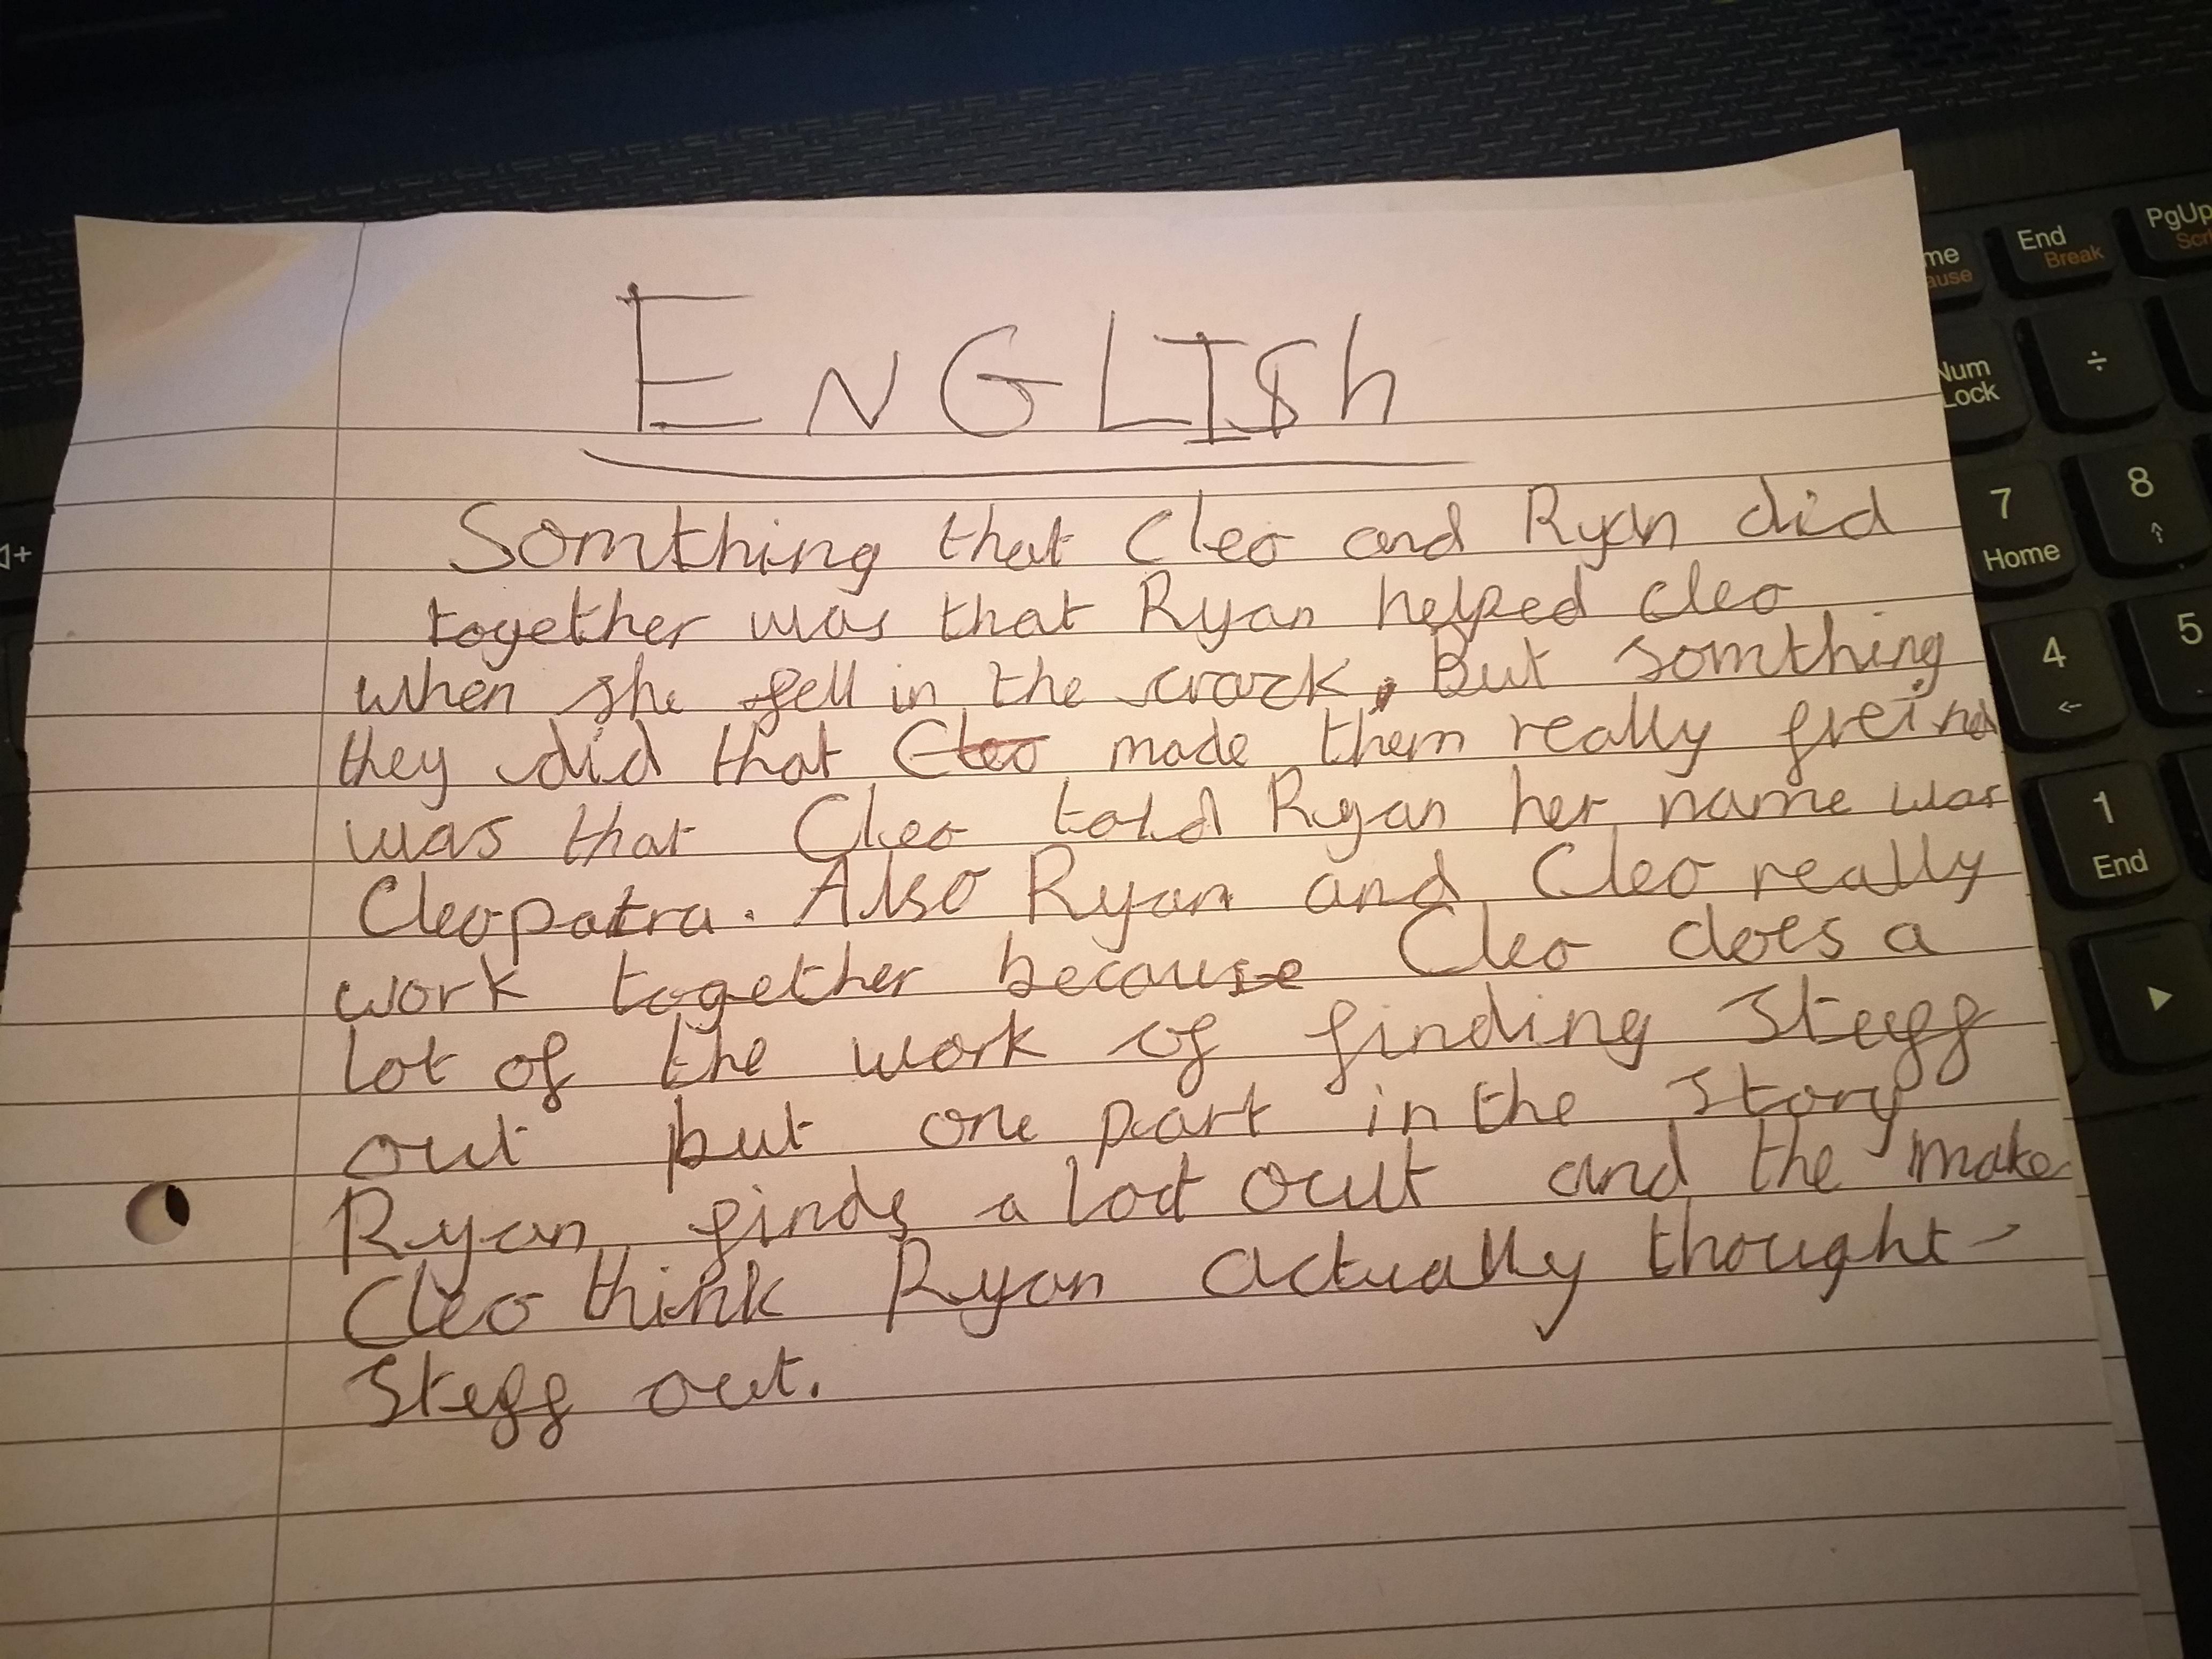 ENGLISh
Somthing that Cleo and Ryan did
together was that Ryan helped cleo
when she fell in the crack. But somthing
they did that Cleo made them really freind
was that Cleo told Ryan her name was
Cleopatra. Also Ryan and Cleo really
work together because Cleo does a
lot of the work of finding Steff
out but one part in the story
Ryan finds a lot out and the make
Cleo think Ryan actually thought
Steff out.
End
Break
PgUp
Num
Lock
÷
7
Home
8
4
5
1
End